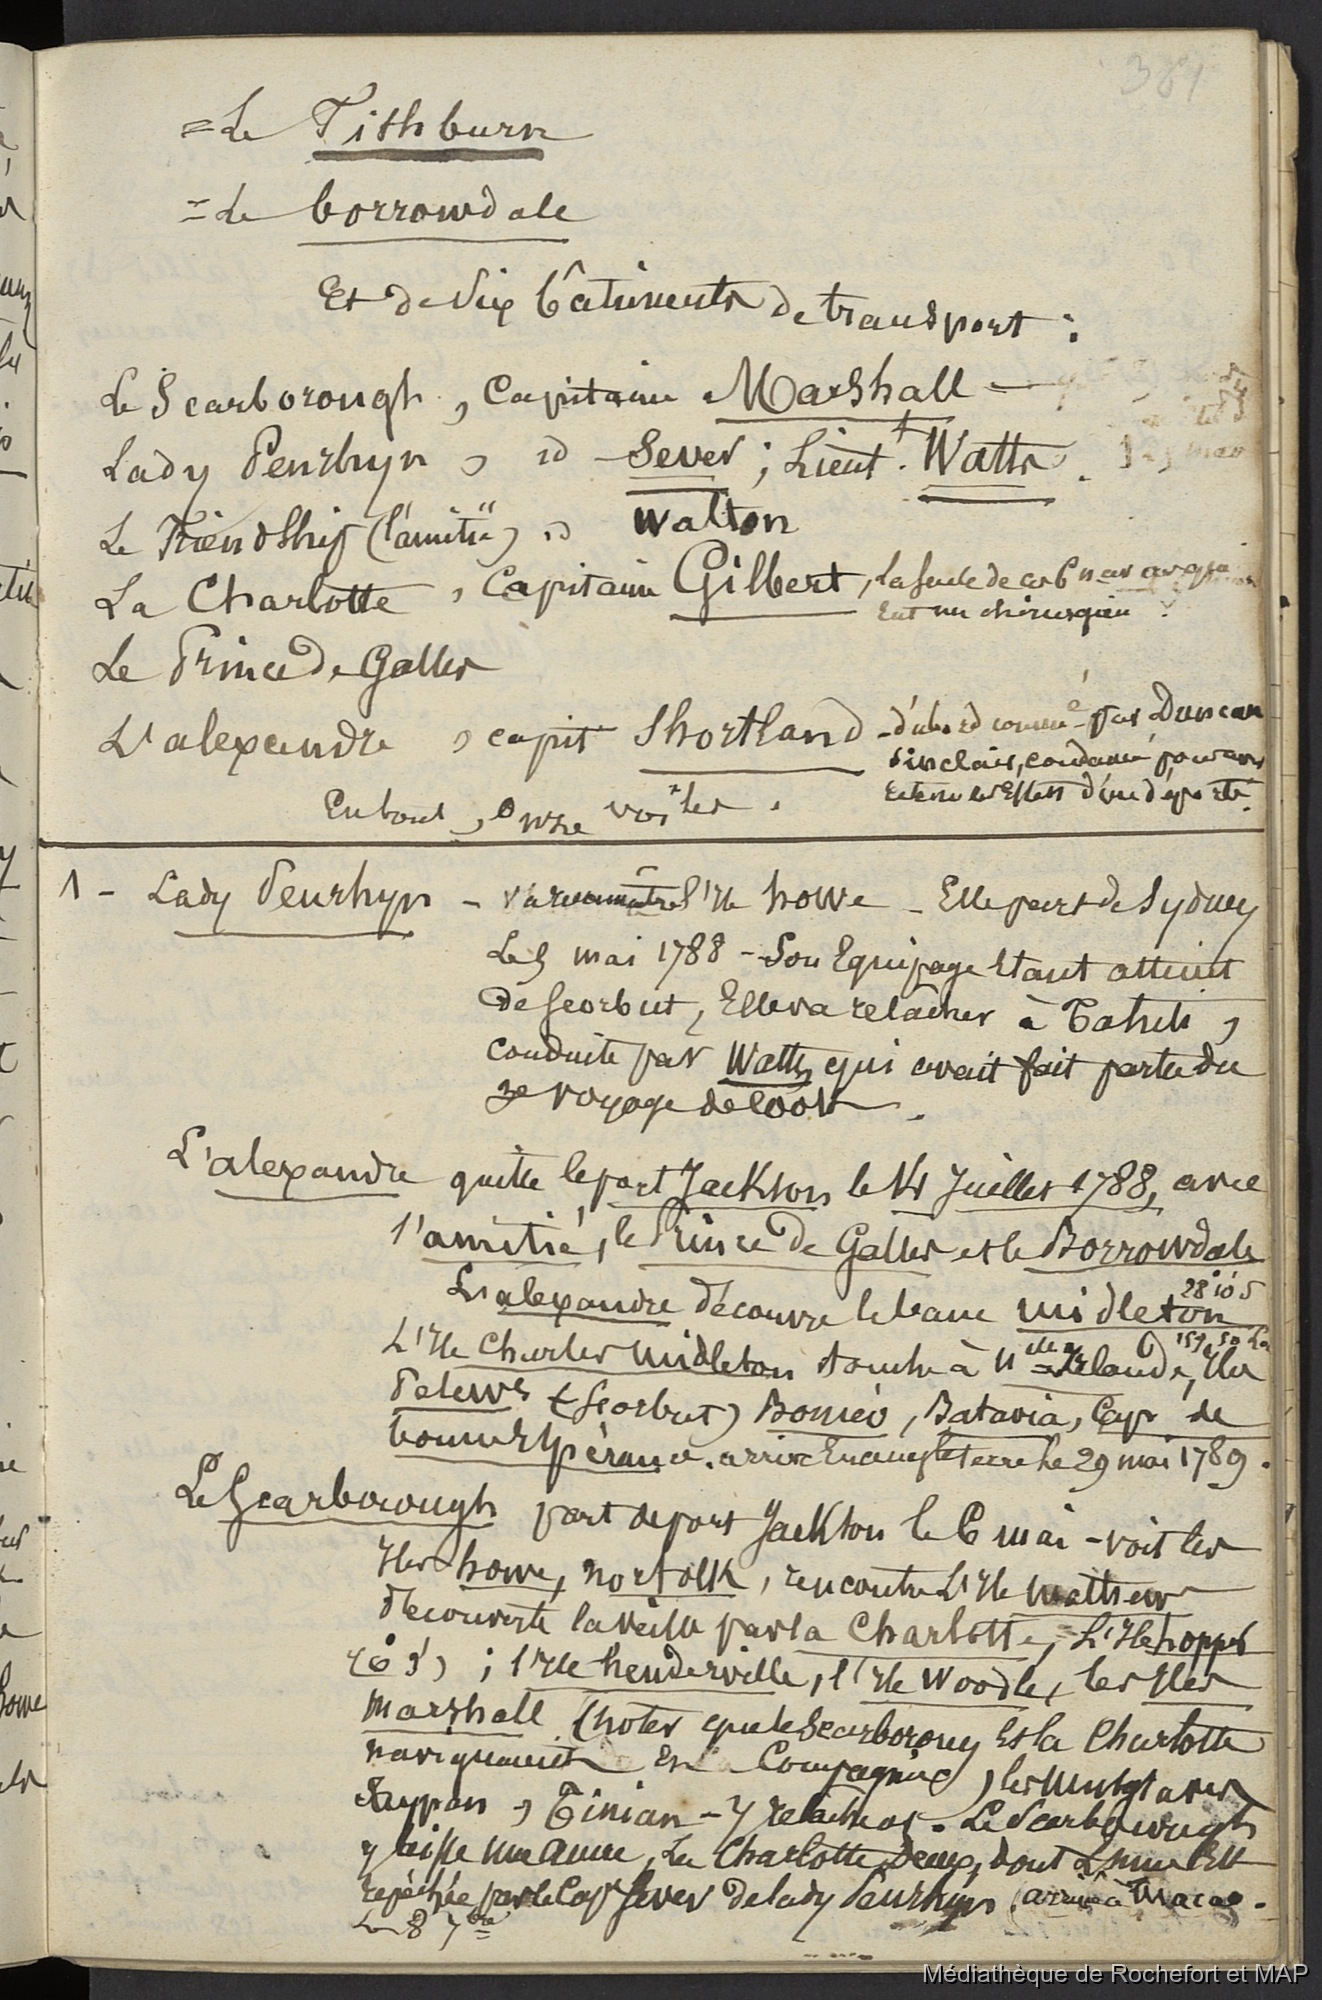 381
= Le Fishburn
= Le borrowdale
Et de six bâtiments de transport :
Le Scarborough, Capitaine Marshall —
Lady Penrhyn, id Sever ; Lieut. Watts.
Le Friendship (l'amitié) id Walton
La Charlotte, Capitaine Gilbert, la seule de ces 6 nav qui
eut un chirurgien
Le Prince de Galles
L'alexandre, capit Shortland - d'abord commé par Duncan
Sinclair, condamné pour avoir
retenu les Effets d'une déportée.
En tout, onze voiles.
1 - Lady Penrhyn - va reconnaitre l'Ile howe - Elle part de Sydney
Le 5 mai 1788 - Son Equipage etant atteint
de scorbut, Elle va relâcher à Tahiti,
conduite par Watts, qui avait fait partie du
3e voyage de Cook.
L'alexandre quitte le port Jackson le 14 Juillet 1788, avec
l'amitié, le Prince de Galles et le Borrowdale
L'alexandre découvre le banc midleton
28° 10' S
L'Ile Charles Midleton touche à Nlle Irlande, Iles
159° 50'
Pelews (Scorbut) Bornéo, Batavia, Cap de
bonne Espérance. arrive En angleterre le 29 mai 1789.
Le Scarborough part de port Jackson le 6 mai - voit les
Iles howe, norfolk, rencontre L'Ile Mathew
découverte la veille par la Charlotte, L'Ile hopper
(0° 3') ; l'Ile henderville, l'Ile Woodle, les Iles
Marshall (noter que le Scarboroug Et la Charlotte
naviguaient En Compagnie),
Saypan, Tinian - y relachent. Le Scarborough
y laisse une ancre, La Charlotte deux, dont L'une Est
repêchée par le Cape Sever de lady Penrhyn. (arrivée à Macao.
Le 8 7bre
Médiathèque de Rochefort et MAP